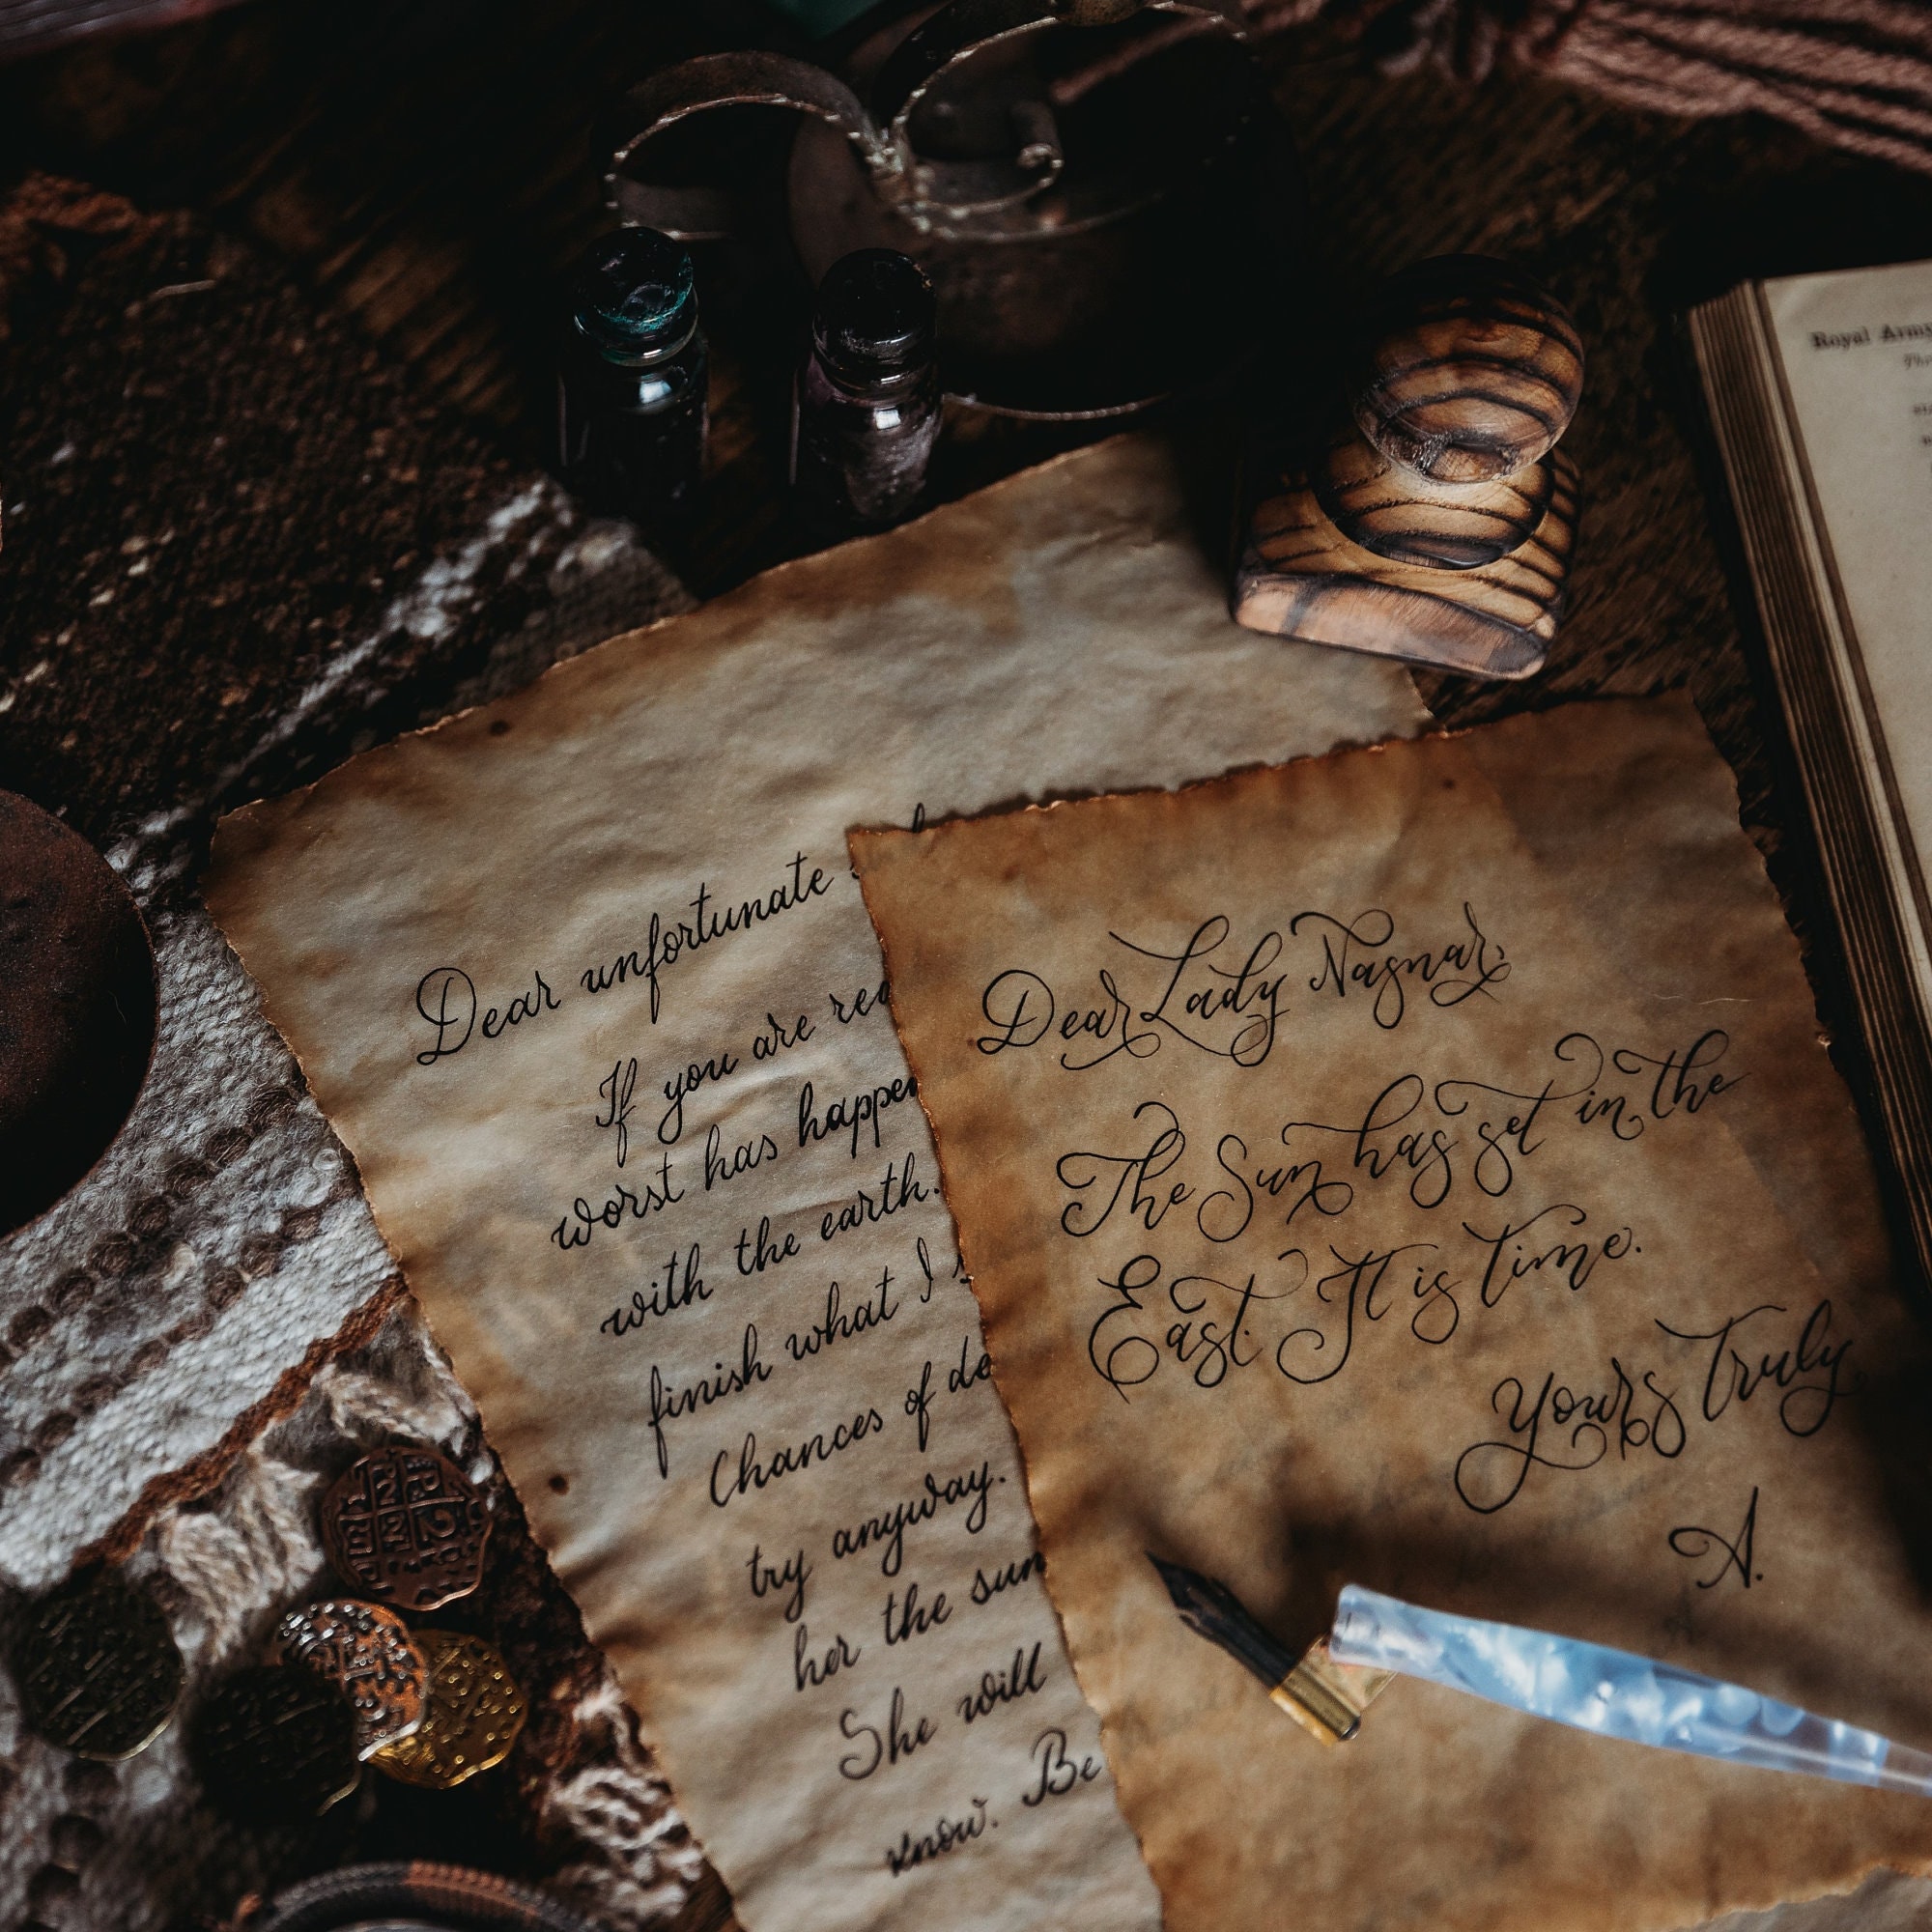 Dear unfortunate
If you are
worst has
with the earth.
finish what I
Chances of
try anyway.
her the sun
She will
know. Be
Dear Lady Nagnar,
The Sun has set in the
East. It is time.
Yours truly
A.
Royal Army